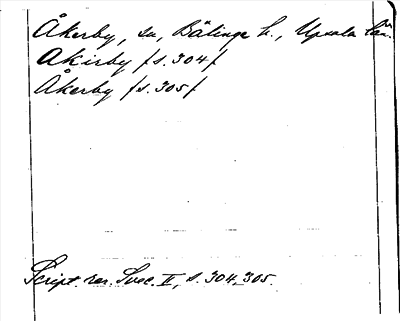 Åkerby, sn, Bälinge h., Upsala län.
Akirby /s. 304/
Åkerby /s. 305/
Script. rer. Svec. II, s. 304, 305.